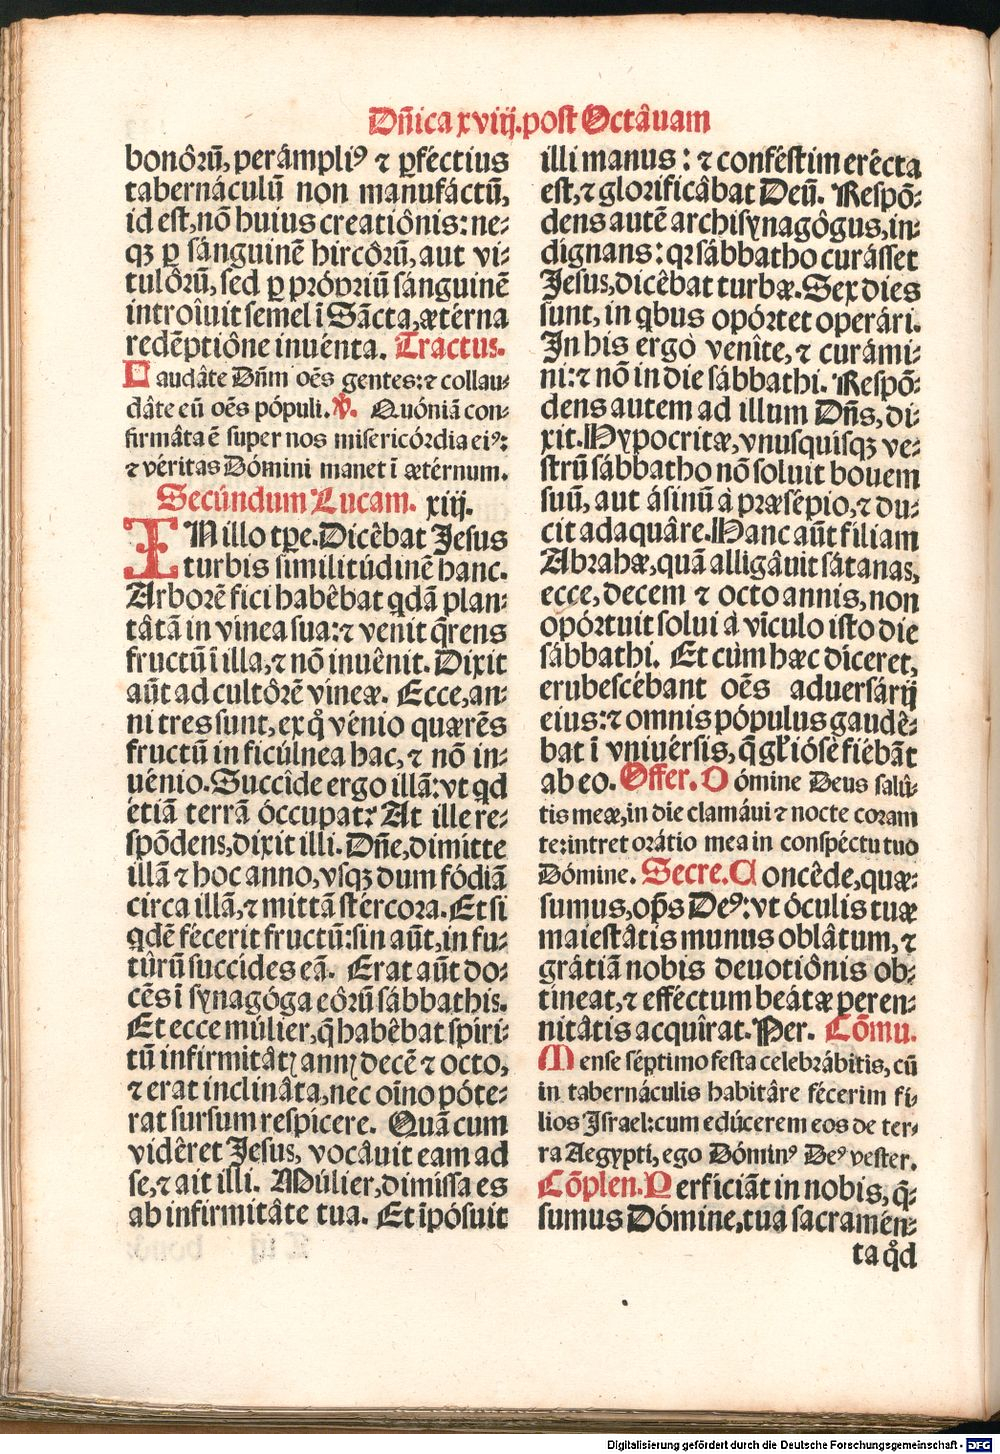 Dn̄ica xviij. post Octâuam
bonôrū, perâmpliꝰ ⁊ ꝑféctius
tabernáculū non manufáctū,
id est, nō huius creatiônis: ne⸗
qꝫ ꝑ sánguinē hircôrū, aut vi⸗
tulôrū, sed ꝑ próprjū sánguinē
introîuit semel ī Sãcta, ætérna
redēptiône inuénta. Tractus.
Laudâte Dn̄m oēs gentes: ⁊ collau⸗
dâte eū oēs pópuli. ℣. Quóniā con⸗
firmâta ē super nos misericórdia eiꝰ:
⁊ véritas Dómini manet ī ætérnum.
Secúndum Lucam. xiij.
IN illo tꝑe. Dicêbat Jesus
turbis similitúdinē hanc.
Arborē fici habêbat qdā plan⸗
tâtā in vinea sua: ⁊ venit q̄rens
fructū ī illa, ⁊ nō inuênit. Dixit
aūt ad cultôrē vineæ. Ecce, an⸗
ni tres sunt, ex qͦ vénio quærēs
fructū in ficúlnea hac, ⁊ nō in⸗
uénio. Succîde ergo illā: vt qd
étiā terrā óccupat? At ille re⸗
spōdens, dixit illi. Dn̄e, dimitte
illā ⁊ hoc anno, vsqꝫ dum fódiā
circa illā, ⁊ mittā stércora. Et si
qdē fécerit fructū: sin aūt, in fu⸗
tûrū succídes eā. Erat aūt do⸗
cēs ī synagóga eôrū sábbathis.
Et ecce múlier, q̄ habêbat spíri⸗
tū infirmitâtꝭ annꝭ decē ⁊ octo,
⁊ erat inclinâta, nec oīno póte⸗
rat sursum respícere. Quā cum
vidêret Jesus, vocâuit eam ad
se, ⁊ ait illi. Múlier, dimissa es
ab infirmitâte tua. Et īpósuit
illi manus: ⁊ conféstim erécta
est, ⁊ glorificâbat Deū. Respō⸗
dens autē archisynagôgus, in⸗
dignans: qꝛ sábbatho curásset
Jesus, dicêbat turbæ. Sex dies
sunt, in qbus opórtet operári.
In his ergo venîte, ⁊ curámi⸗
ni: ⁊ nō in die sábbathi. Respō⸗
dens autem ad illum Dn̄s, di⸗
xit. Hypocritæ, vnusquísqꝫ ve⸗
strū sábbatho nō soluit bouem
suū, aut ásinū à præsépio, ⁊ du⸗
cit adaquâre. Hanc aūt filiam
Abrahæ, quā alligâuit sátanas,
ecce, decem ⁊ octo annis, non
opórtuit solui à vīculo isto die
sábbathi. Et cùm hæc díceret,
erubescébant oēs aduersárij
eius: ⁊ omnis pópulus gaudê⸗
bat ī vniuérsis, q̄ gl̄iósè fiébāt
ab eo. Offer. Dómine Deus salú⸗
tis meæ, in die clamáui ⁊ nocte coram
te: intret orátio mea in conspéctu tuo
Dómine. Secre. Concêde, quæ⸗
sumus, op̄s Deꝰ: vt óculis tuæ
maiestâtis munus oblâtum, ⁊
grâtiā nobis deuotiônis ob⸗
tineat, ⁊ efféctum beátæ peren⸗
nitâtis acquîrat. Per. Cōmu.
Mense séptimo festa celebrábitis, cū
in tabernáculis habitâre fécerim fi⸗
lios Jsrael: cum edúcerem eos de ter⸗
ra Aegypti, ego Dóminꝰ Deꝰ vester.
Cōplen. Perficiāt in nobis, q̄⸗
sumus Dómine, tua sacramén⸗
ta qͦd
Digitalisierung gefördert durch die Deutsche Forschungsgemeinschaft - DFG